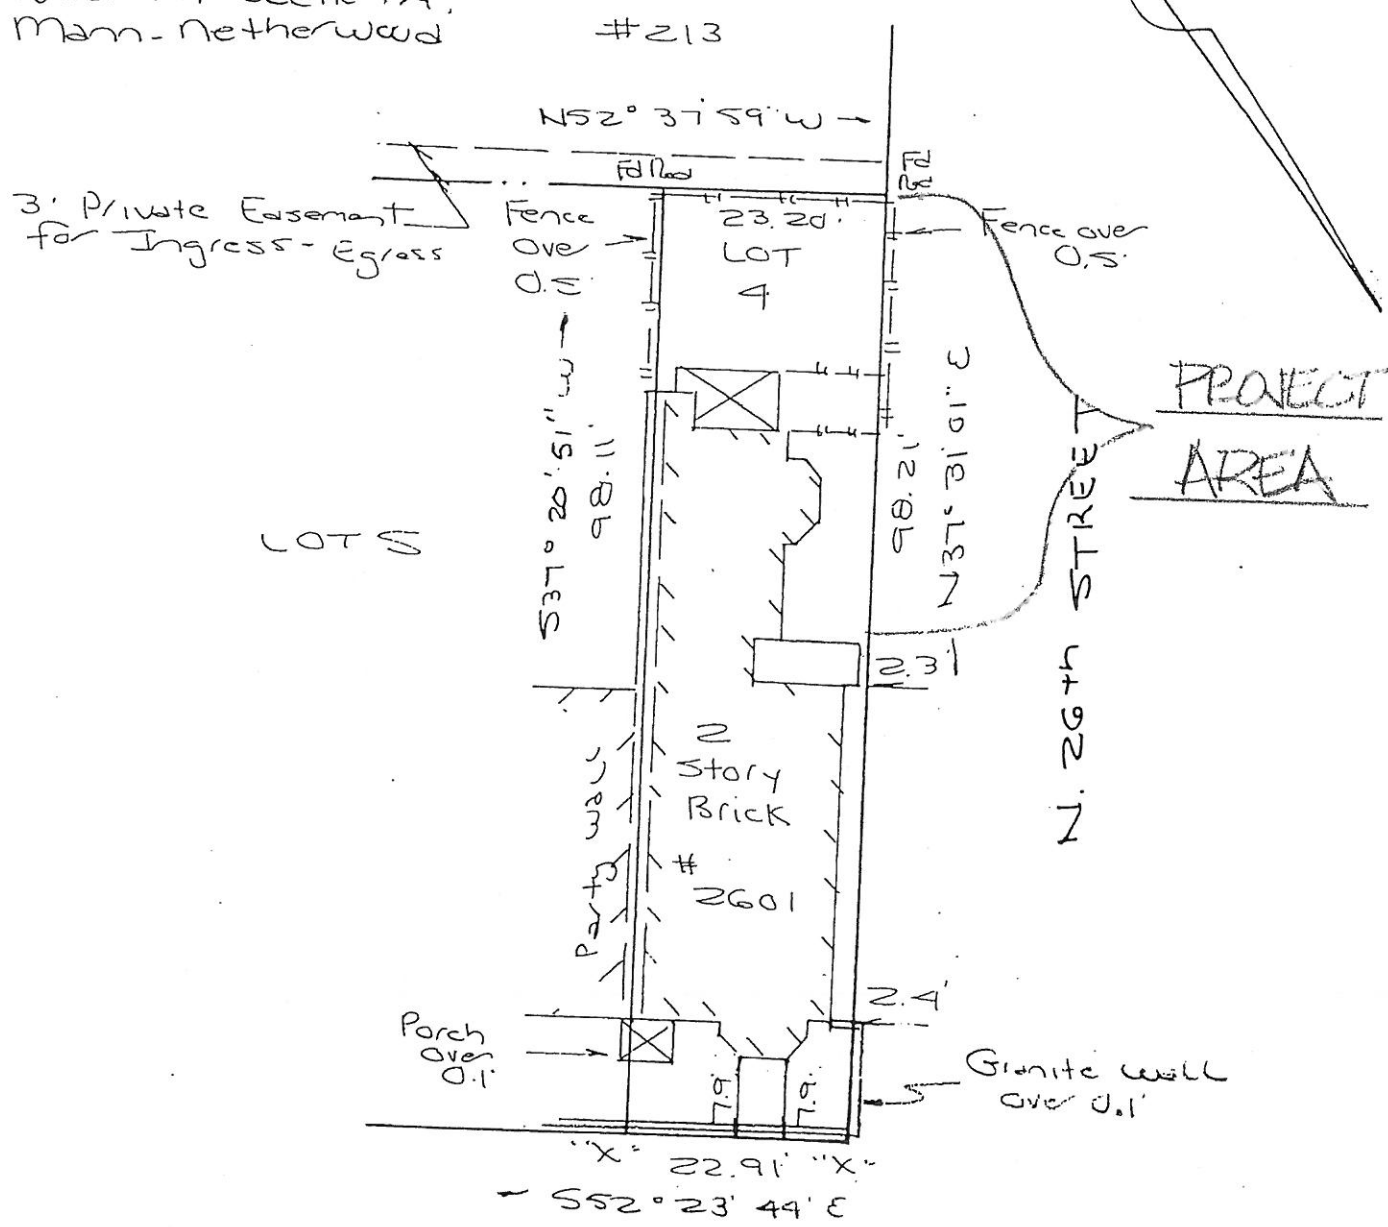 Mann-Netherwood
#213
N52° 37' 59" W
Fd Rod
Fd
3' Private Easement
for Ingress-Egress
Fence
Over
0.5'
23.20'
LOT
4
Fence over
0.5'
S37° 20' 51" W
98.11'
98.21'
N37° 31' 01" E
PROJECT
AREA
N. 26th STREET
LOT 5
2.3'
2
Story
Brick
#
2601
Party wall
2.4'
Porch
Over
0.1'
7.9'
7.9'
Granite wall
over 0.1'
"X" 22.91' "X"
S52° 23' 44" E